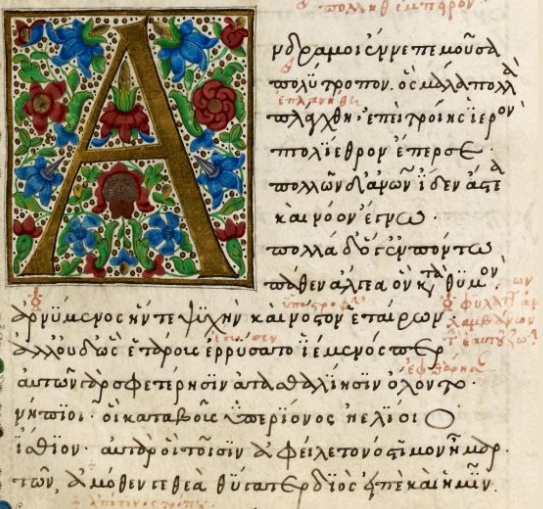 Ἄνδρα μοι ἔννεπε μοῦσα
πολύτροπον. ὃς μάλα πολλὰ
πλάγχθη. ἐπεὶ τροίης ἱερὸν
πτολίεθρον ἔπερσε.
πολλῶν δ' ἀνθρώπων ἴδεν ἄστεα
καὶ νόον ἔγνω.
πολλὰ δ' ὅγ' ἐν πόντω
πάθεν ἄλγεα ὃν κατὰ θυμόν.
ἀρνύμενος ἥν τε ψυχὴν καὶ νόστον ἑταίρων.
ἀλλ' οὐδ' ὣς ἑτάρους ἐρρύσατο ἱέμενός περ
αὐτῶν γὰρ σφετέρησιν ἀτασθαλίησιν ὄλοντο.
νήπιοι. οἳ κατὰ βοῦς ὑπερίονος ἠελίοιο
ἤσθιον. αὐτὰρ ὁ τοῖσιν ἀφείλετο νόστιμον ἦμαρ.
τῶν, ἁμόθεν γε θεὰ θύγατερ διὸς εἰπὲ καὶ ἡμῖν.